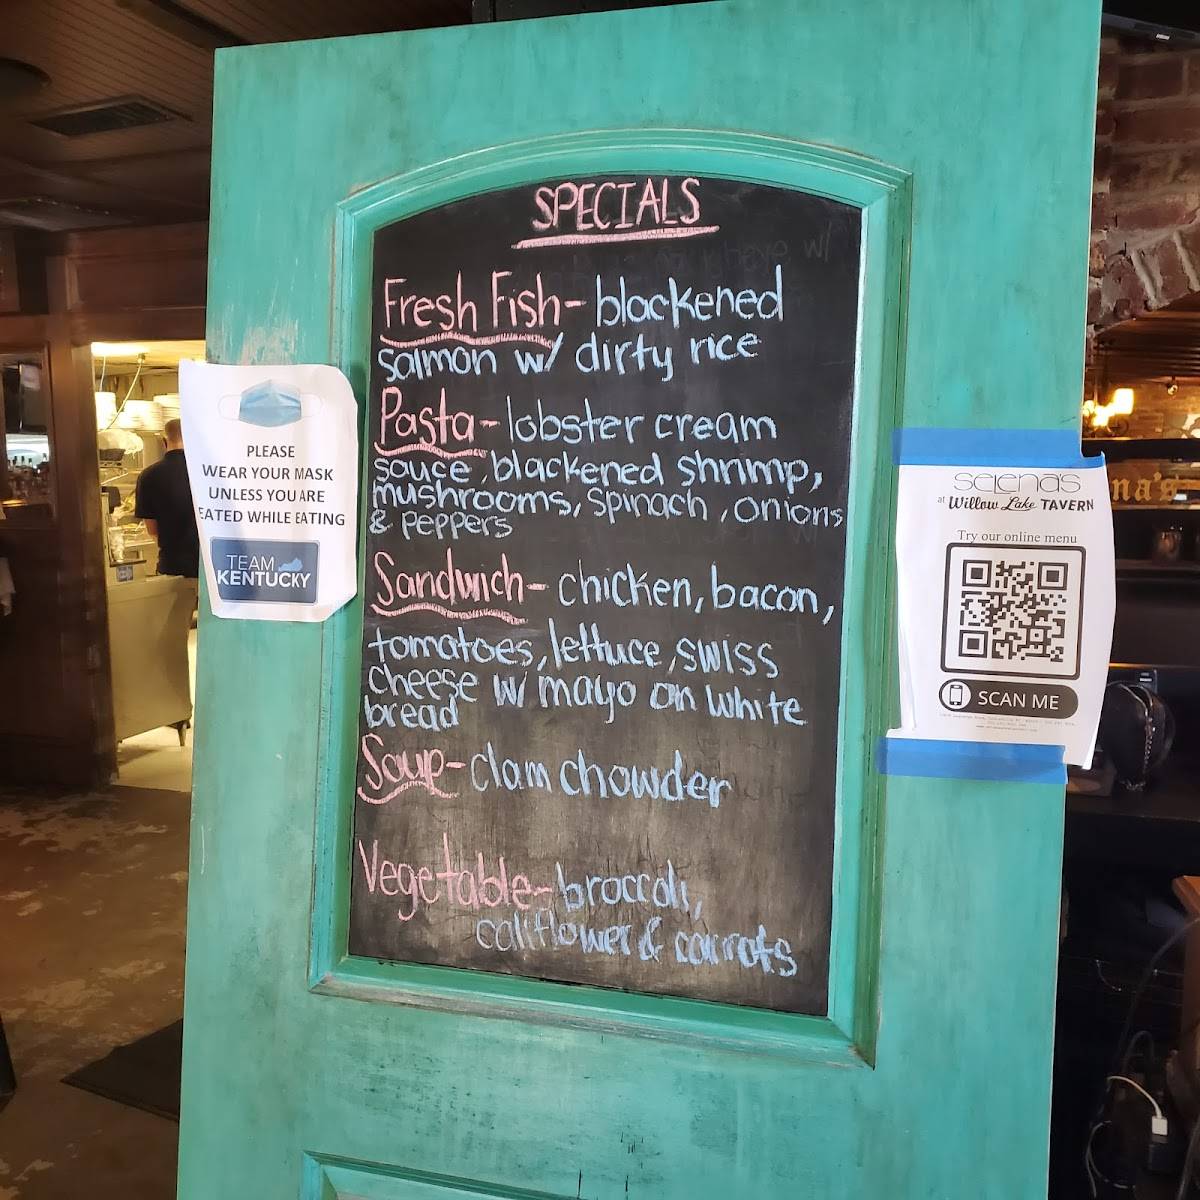 SPECIALS
Fresh Fish- blackened
salmon w/ dirty rice
Pasta- lobster cream
sauce, blackened shrimp,
mushrooms, spinach, onions
& peppers
Sandwich- chicken, bacon,
tomatoes, lettuce, swiss
cheese w/ mayo on white
bread
Soup- clam chowder
Vegetable- broccoli,
califlower & carrots
PLEASE
WEAR YOUR MASK
UNLESS YOU ARE
EATED WHILE EATING
TEAM
KENTUCKY
selena's
at Willow Lake TAVERN
Try our online menu
SCAN ME
na's